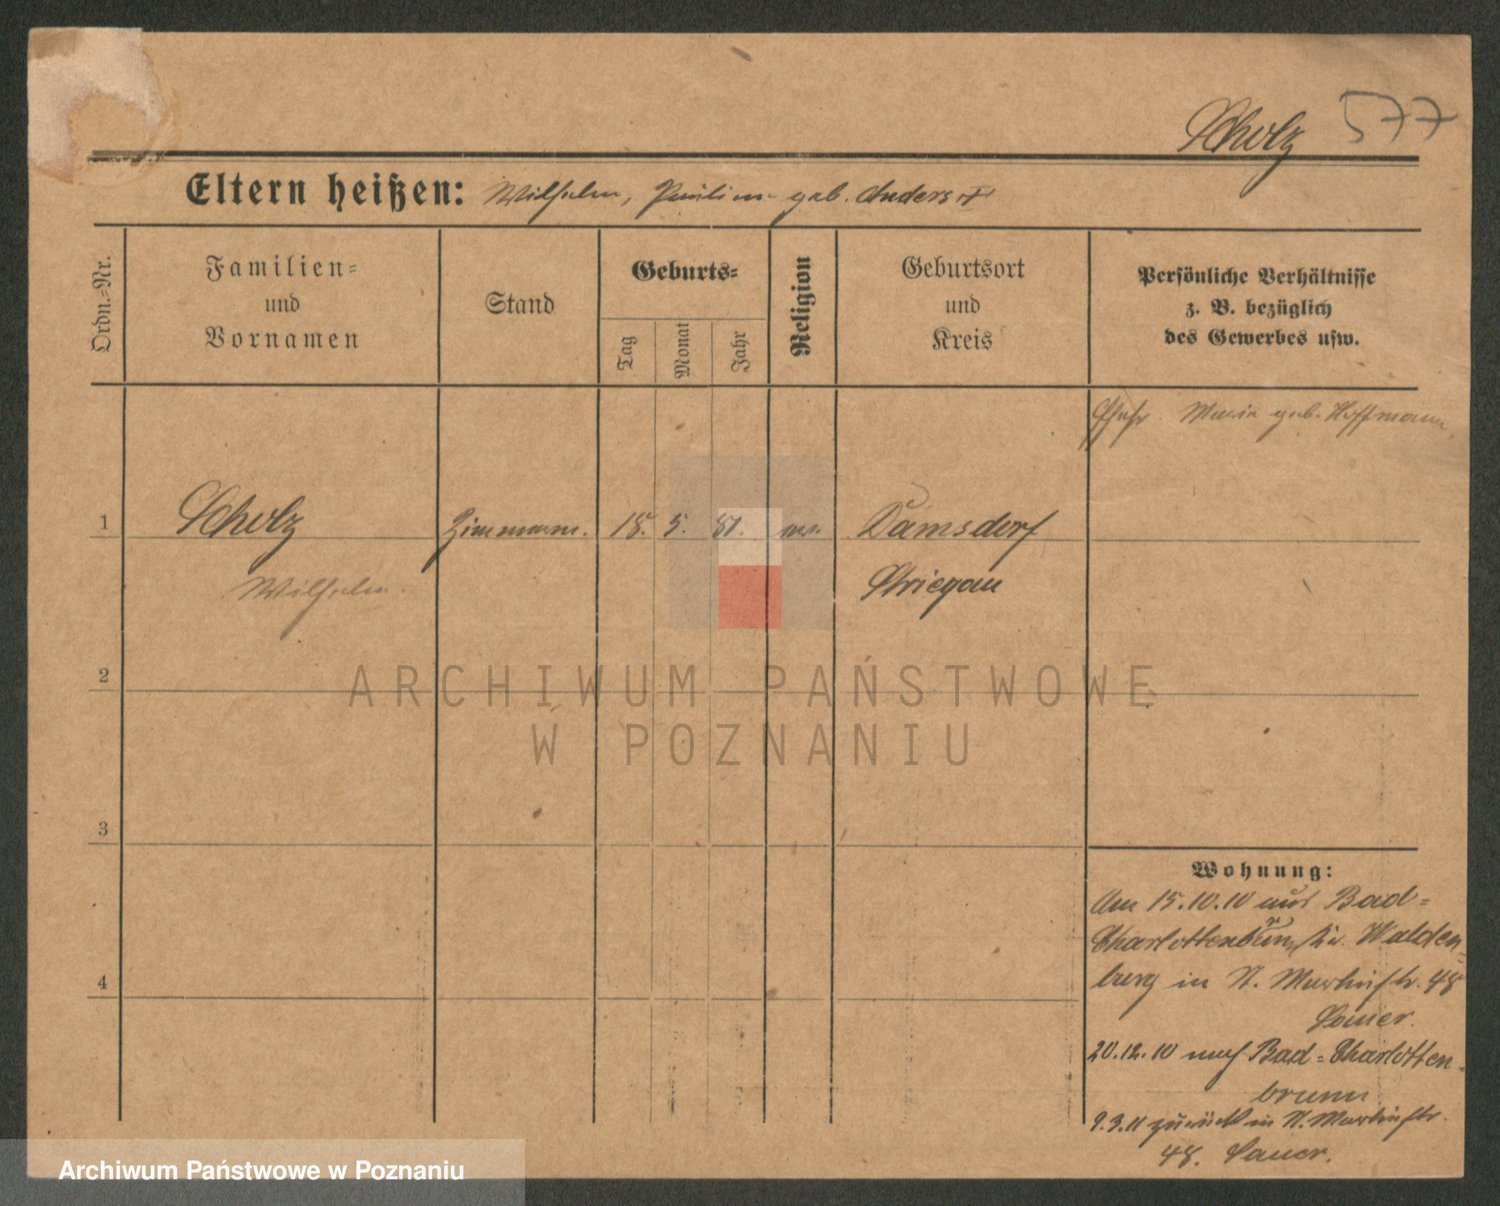 Scholz 577
Eltern heißen: Wilhelm, Paulin geb. Anders
Ordn.-Nr.
Familien-
und
Vornamen
Stand
Geburts-
Tag
Monat
Jahr
Religion
Geburtsort
und
Kreis
Persönliche Verhältnisse
z. B. bezüglich
des Gewerbes usw.
Maria geb. Hoffmann
1 Scholz Zimmerm. 18. 5. 81. Damsdorf
Wilhelm. Striegau
2
3
4
Wohnung:
Am 15.10.10 aus Bad-
Charlottenbrunn Walden-
burg in St. Martinstr. 48
20.12.10 nach Bad-Charlotten-
brunn
9.3.11 zurück in St. Martinstr.
48.
ARCHIWUM PAŃSTWOWE
W POZNANIU
Archiwum Państwowe w Poznaniu